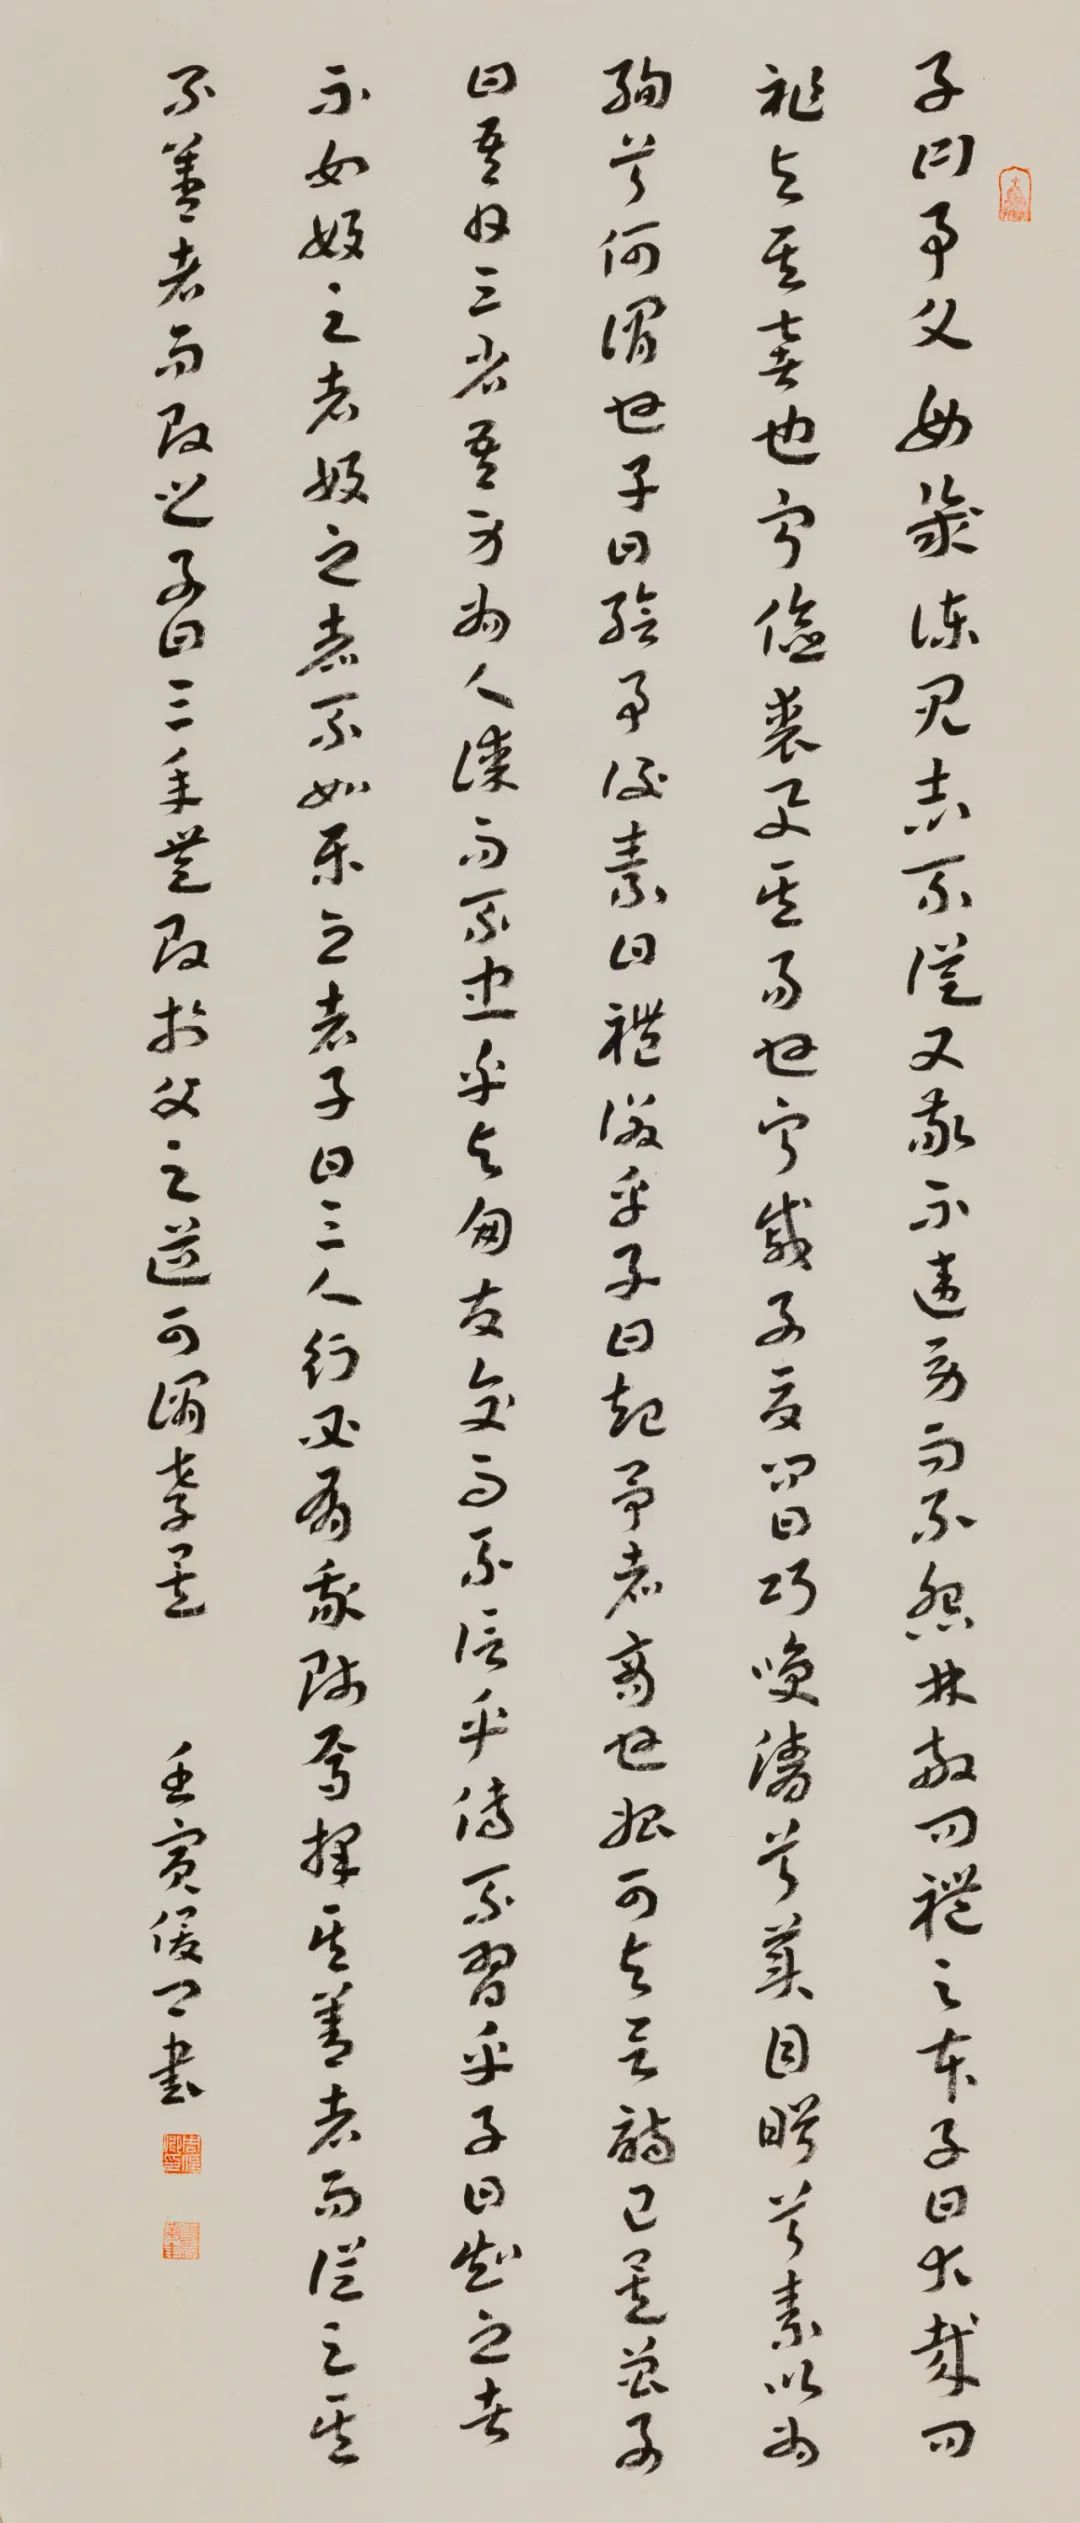 子曰事父母幾諫見志不從又敬不違勞而不怨林放問禮之本子曰大哉問
禮與其奢也寧儉喪與其易也寧戚子夏問曰巧笑倩兮美目盼兮素以為
絢兮何謂也子曰繪事後素曰禮後乎子曰起予者商也始可與言詩已矣曾子
曰吾日三省吾身為人謀而不忠乎與朋友交而不信乎傳不習乎子曰知之者
不如好之者好之者不如樂之者子曰三人行必有我師焉擇其善者而從之其
不善者而改之子曰三年無改於父之道可謂孝矣
壬寅 書